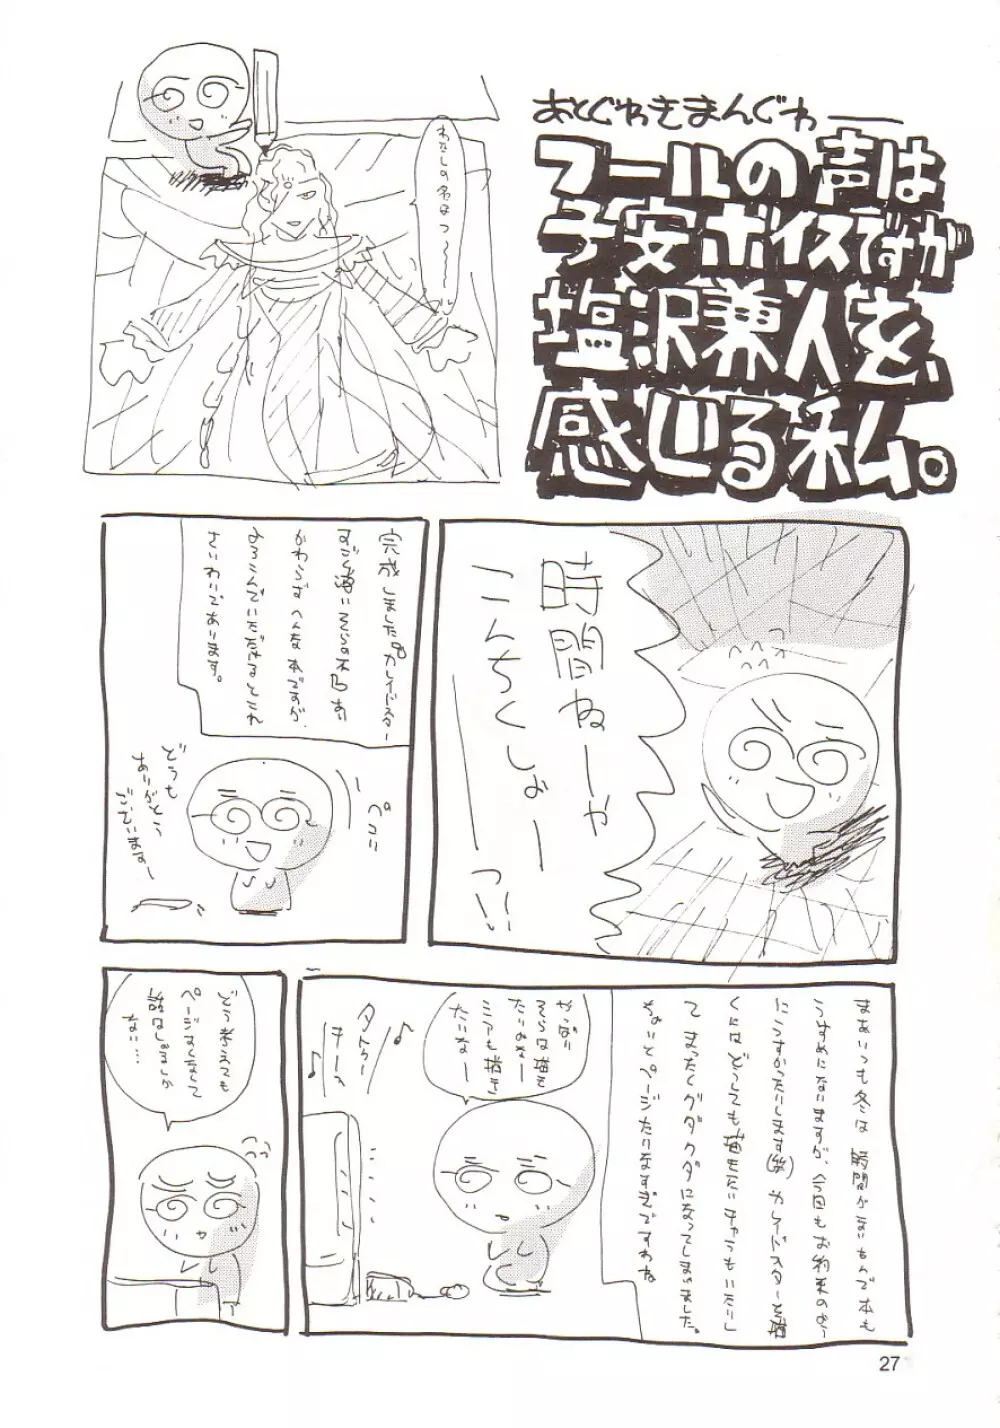 あとぐわきまんぐわ――
フールの声は
子安ボイスですが
塩沢兼人を、
感じる私。
わたしの名はフ～～～ル
時間ねーや
こんちくしょー
ーーっ!!
完成しました。カレイドスター
すごく濃いそらの本
かわらずへんな本ですが、
よろこんでいただけるとこれ
さいわいであります。
ペコリ
どうも
ありがとう
ございます～
まぁいつも冬は時間がないもんで本も
うすめにないますが、今回もお約束のよう
にうすかったりします(笑)カレイドスターを描
くにはどうしても描きたいキャラもいたりし
て まったくグダグダになってしまいました。
ちょいとページたりなすぎですわね
やっぱり
そらは描き
たいよなー
ミアも描き
たいなー
♪
♪
どう考えても
ページ少なくて
話はしょるしか
ない…
27